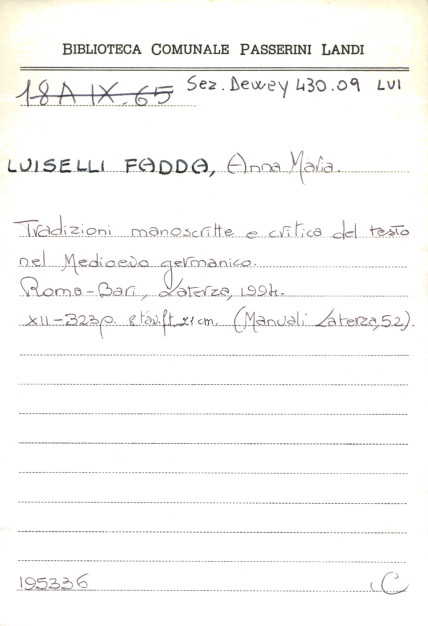 BIBLIOTECA COMUNALE PASSERINI LANDI
18A IX. 65 Sez. Dewey 430.09 LUI
LUISELLI FADDA, Anna Maria.
Tradizioni manoscritte e critica del testo
nel Medioevo germanico.
Roma-Bari, Laterza, 1994.
XII-323p. 8 tav.f.t. 21 cm. (Manuali Laterza, 52).
195336 C